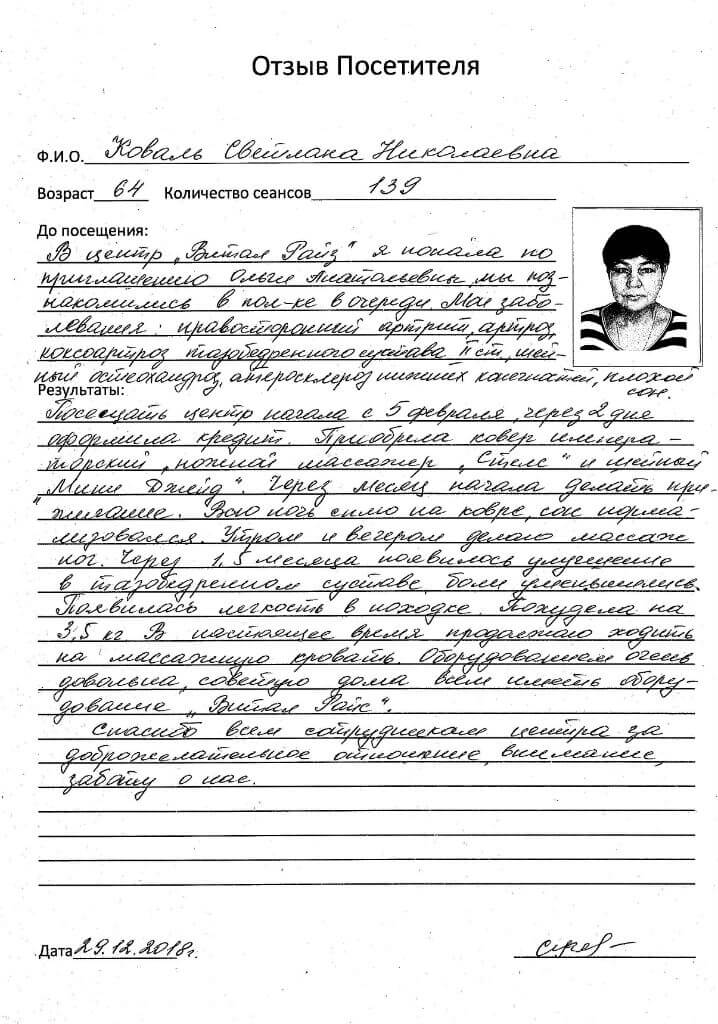 Отзыв Посетителя
Ф.И.О. Коваль Светлана Николаевна
Возраст 64 Количество сеансов 139
До посещения:
В центр „Витал Райз" я попала по
приглашению Ольги Анатольевны, мы поз-
накомились в пол-ке в очереди. Мои забо-
левания: правосторонний артрит, артроз,
коксоартроз тазобедренного сустава II ст, шей-
ный остеохандроз, атеросклероз нижних конечностей, плохой
сон.
Результаты:
Посещать центр начала с 5 февраля, через 2 дня
оформила кредит. Приобрела ковер импера-
торский, ножной массажер „Стелс" и шейный
„Мини Джейд". Через месяц начала делать при-
жигание. Всю ночь сплю на ковре, сон норма-
лизовался. Утром и вечером делаю массаж
ног. Через 1,5 месяца появилось улучшение
в тазобедренном суставе, боли уменьшились.
Появилась легкость в походке. Похудела на
3,5 кг. В настоящее время продолжаю ходить
на массажную кровать. Оборудованием очень
довольна, советую дома всем иметь обору-
дование „Витал Райс".
Спасибо всем сотрудникам центра за
доброжелательное отношение, внимание,
заботу о нас.
Дата 29.12.2018г.